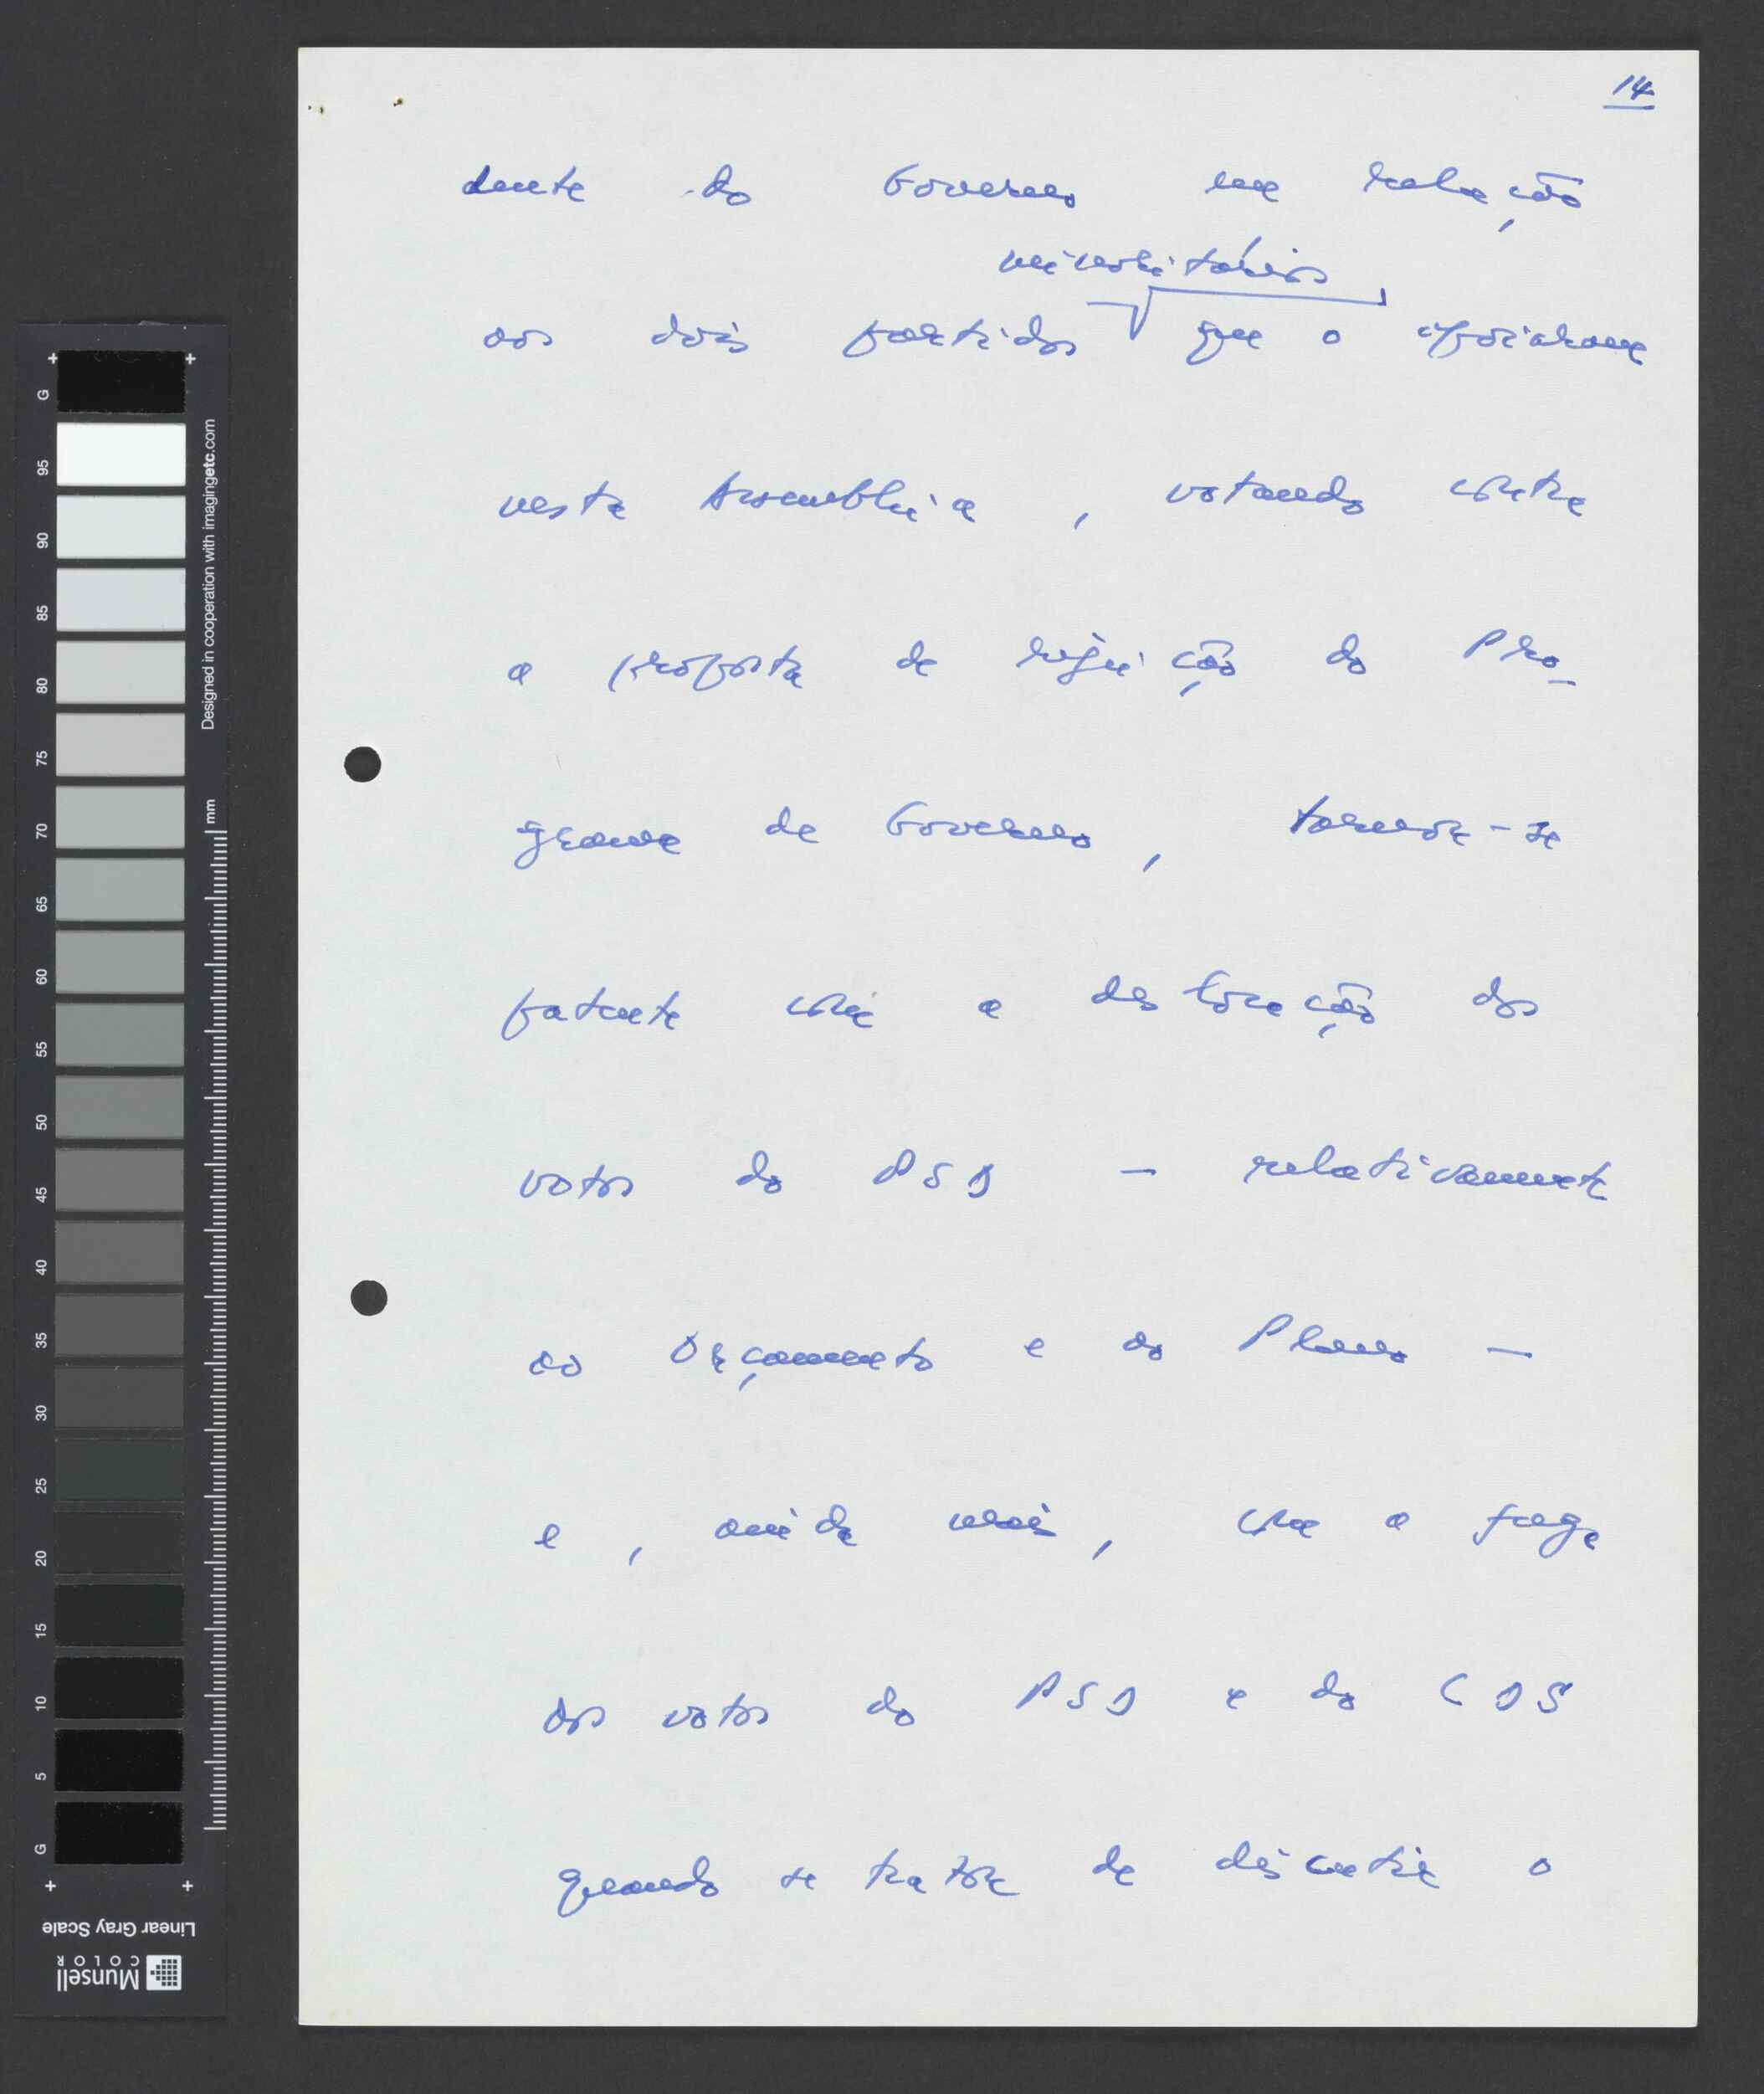 14
dente do Governo em relação
minoritários
aos dois partidos que o apoiaram
nesta Assembleia, votando contra
a proposta de rejeição do Pro-
grama de Governo, tornou-se
patente com a deslocação dos
votos do PSD — relativamente
ao Orçamento e ao Plano —
e, ainda mais, com a fuga
dos votos do PSD e do CDS
quando se tratou de discutir o
G
95
90
85
80
75
70
65
60
55
50
45
40
35
30
25
20
15
10
5
G
Designed in cooperation with imagingetc.com
mm
Linear Gray Scale
Munsell
COLOR